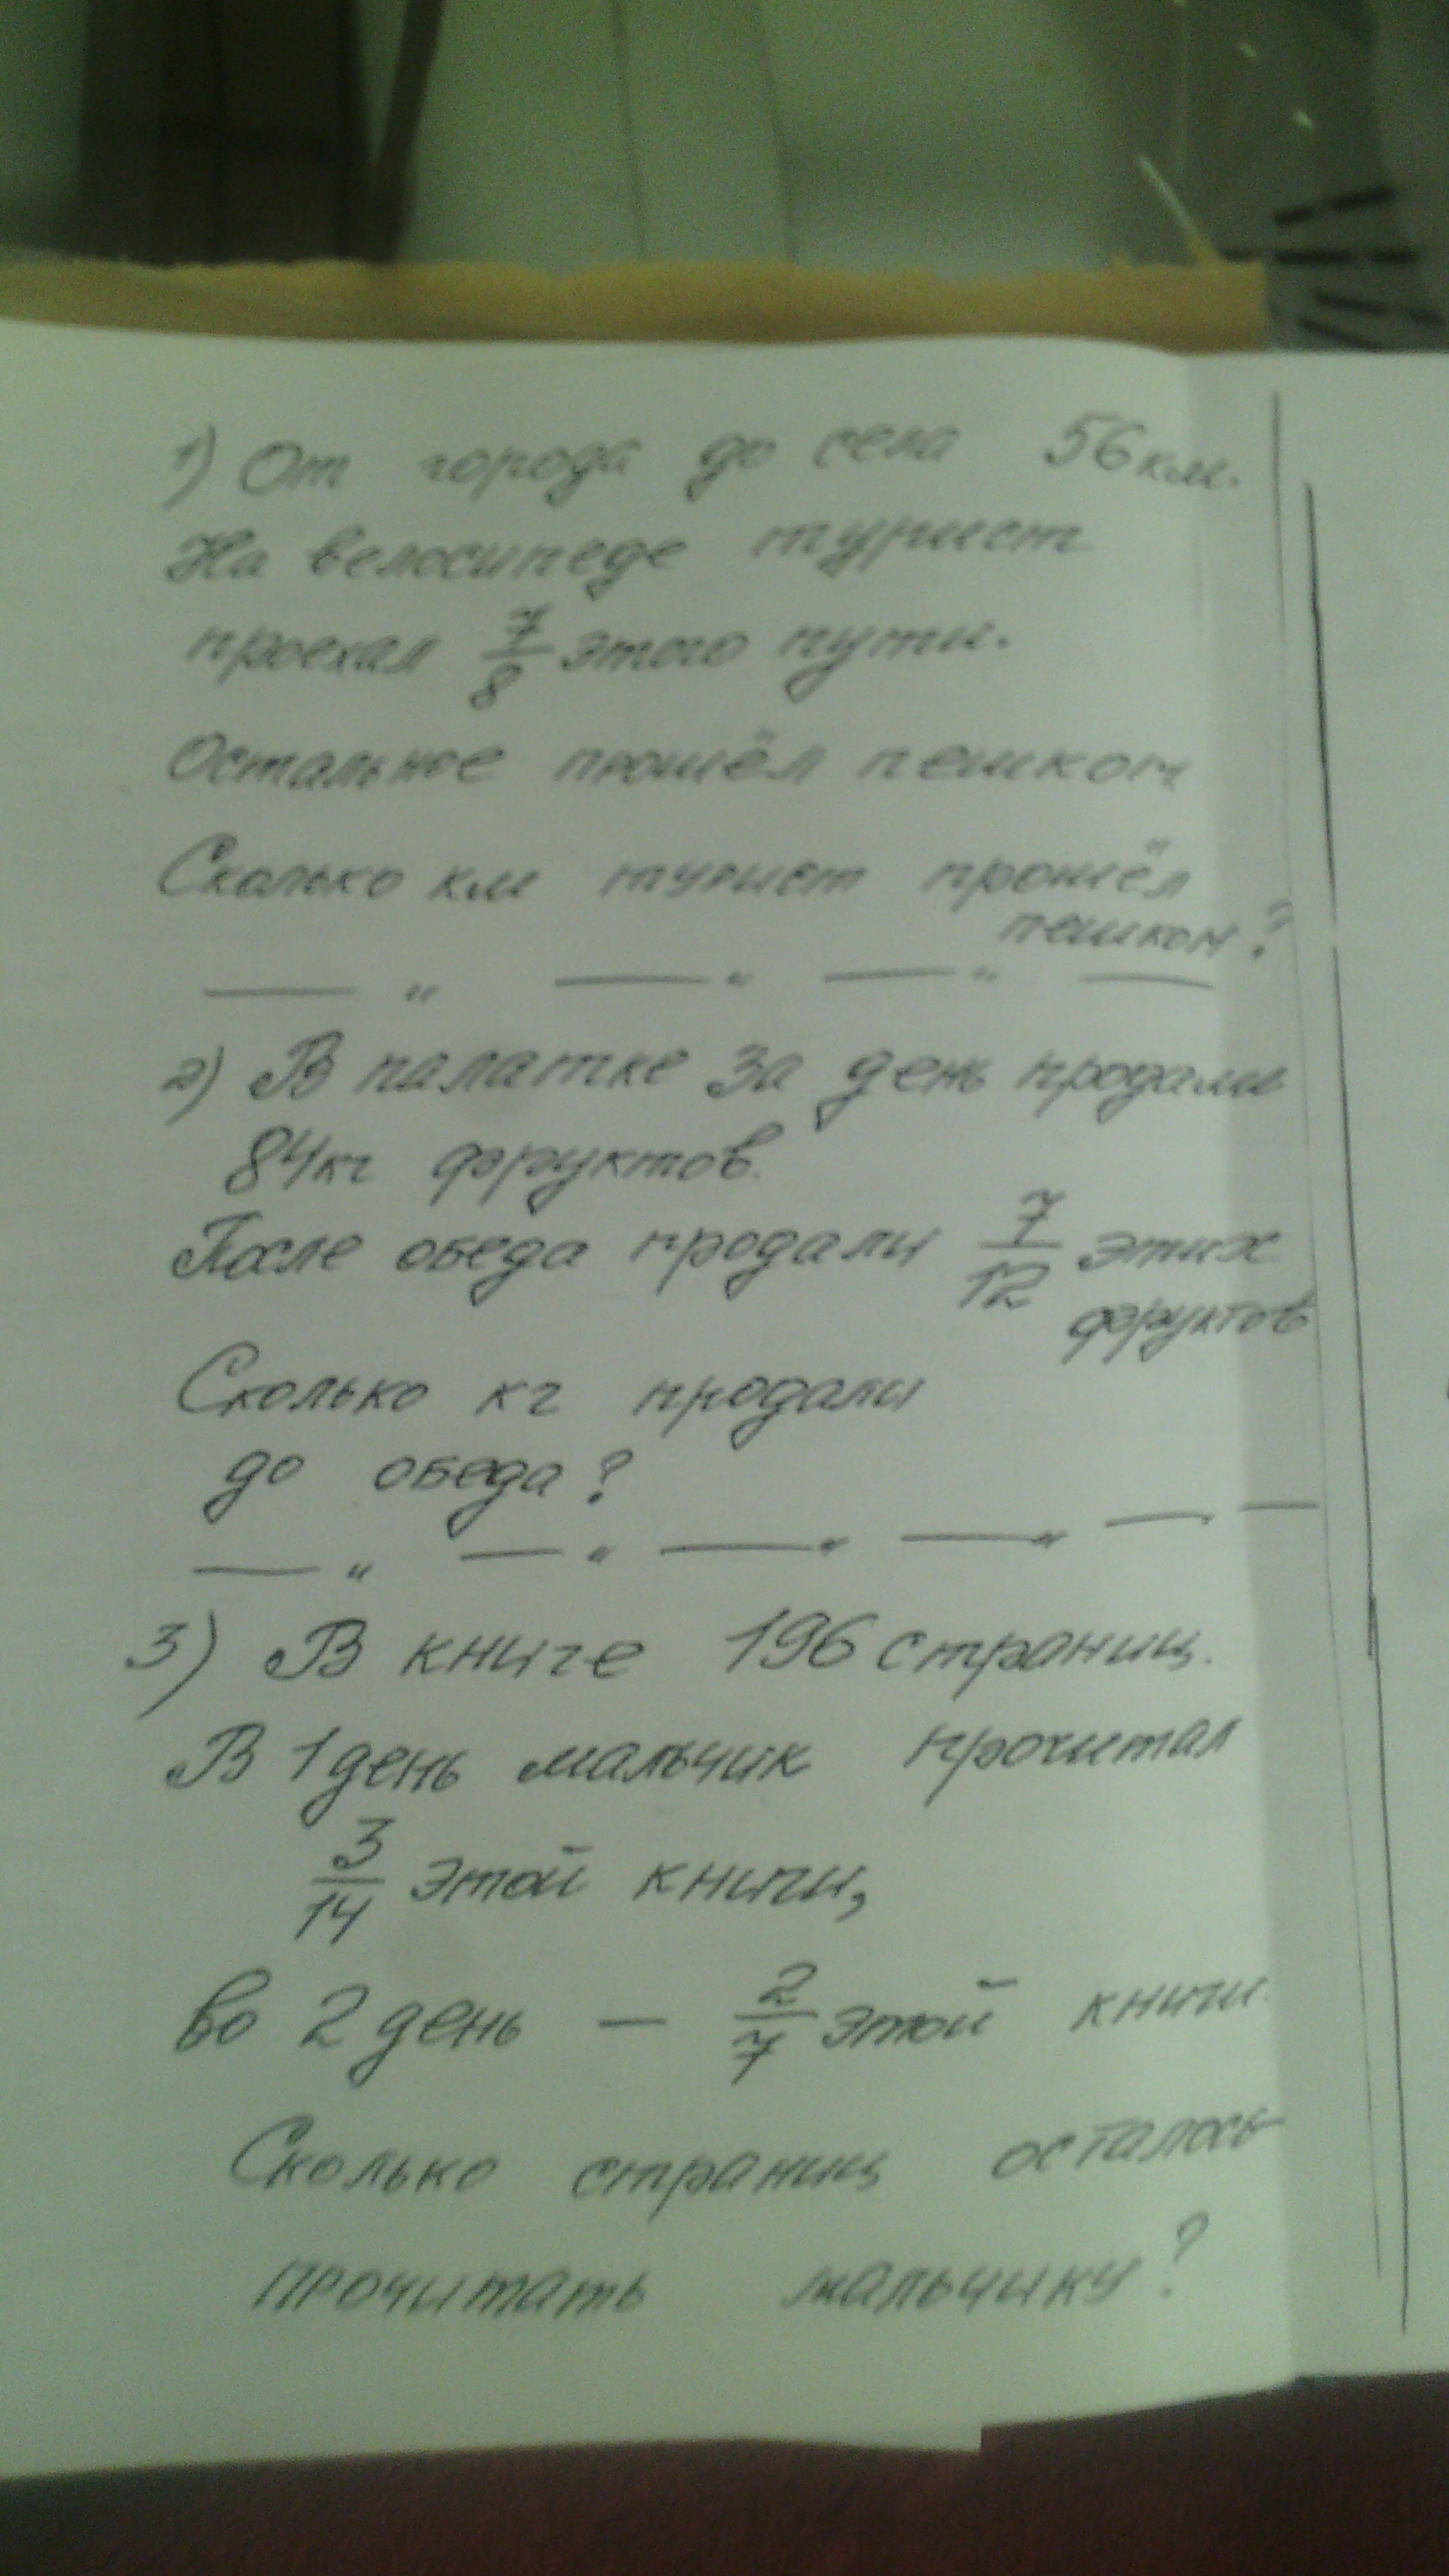 1) От города до села 56 км.
На велосипеде турист
проехал 7/8 этого пути.
Остальное прошёл пешком
Сколько км турист прошёл
пешком?
— " — " — " —
2) В палатке за день продали
84 кг фруктов.
После обеда продали 7/12 этих
фруктов
Сколько кг продали
до обеда?
— " — " — " — " — —
3) В книге 196 страниц.
В 1 день мальчик прочитал
3/14 этой книги,
во 2 день — 2/7 этой книги.
Сколько страниц осталось
прочитать мальчику?